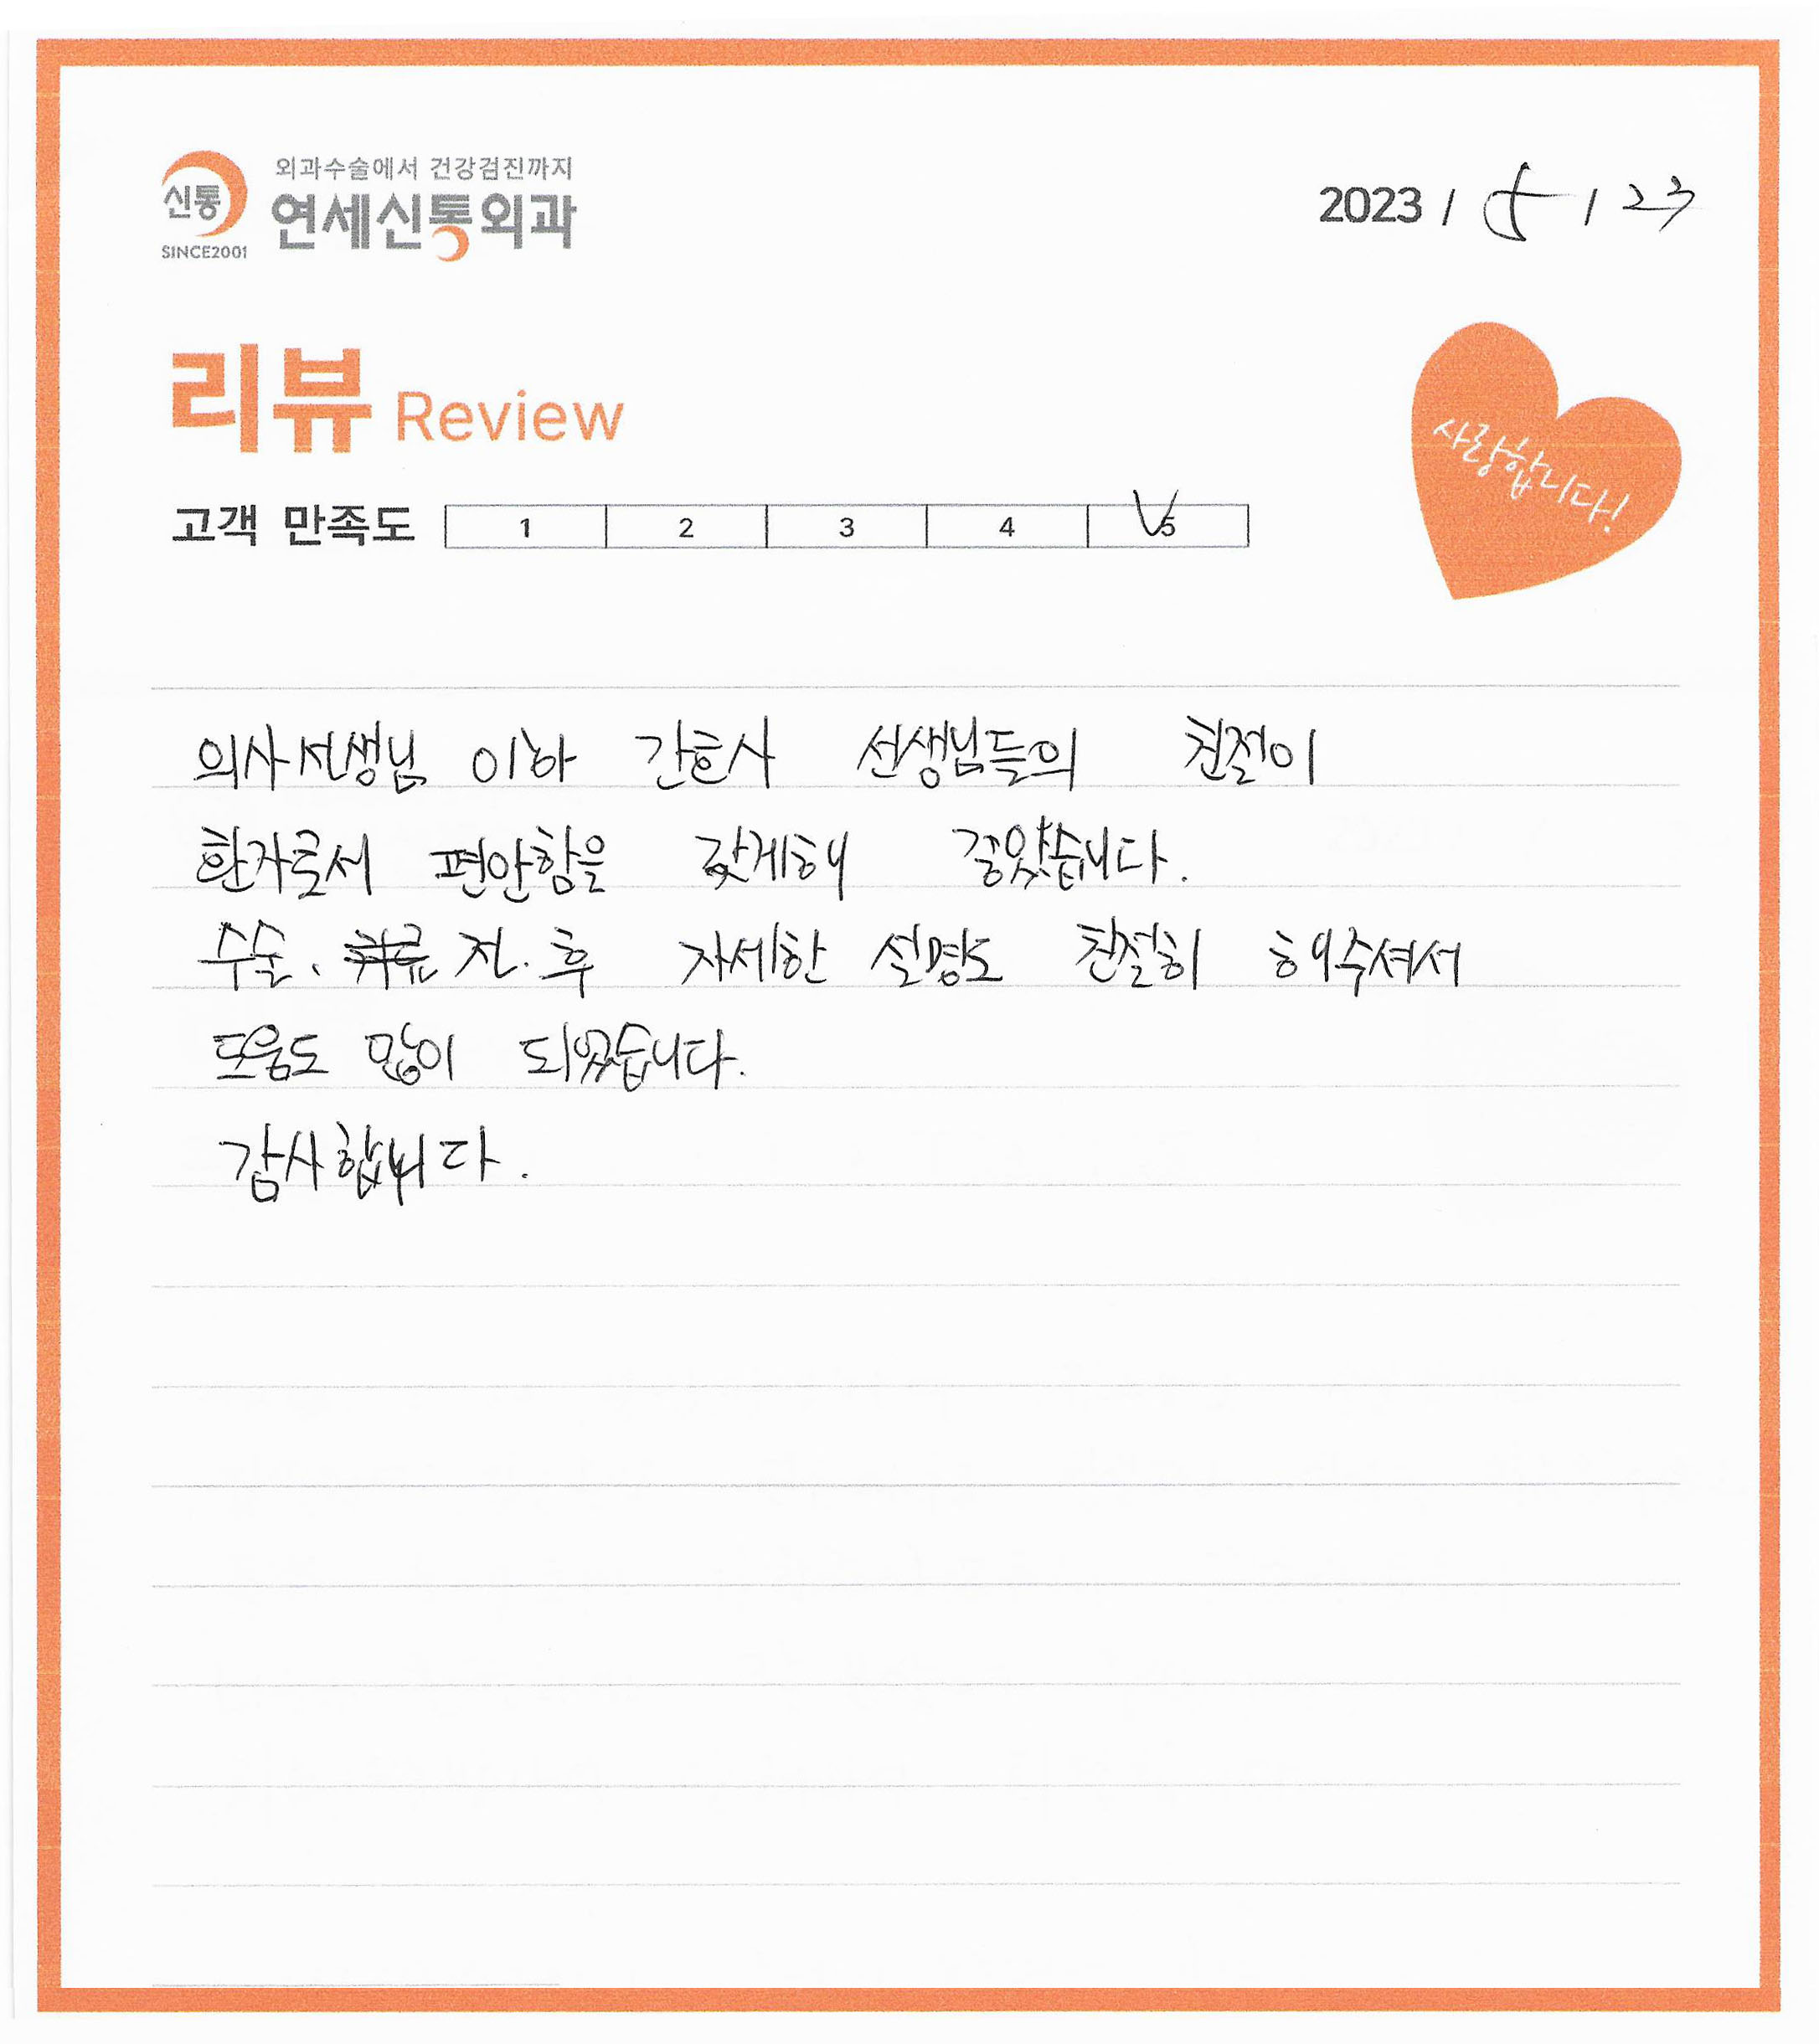 신통
SINCE2001
외과수술에서 건강검진까지
연세신통외과
2023 / 5 / 23
리뷰 Review
사랑합니다!
고객 만족도 1 2 3 4 5
의사선생님 이하 간호사 선생님들의 친절이
환자로서 편안함을 갖게해 좋았습니다.
수술、 전.후 자세한 설명도 친절히 해주셔서
도움도 많이 되었습니다.
감사합니다.